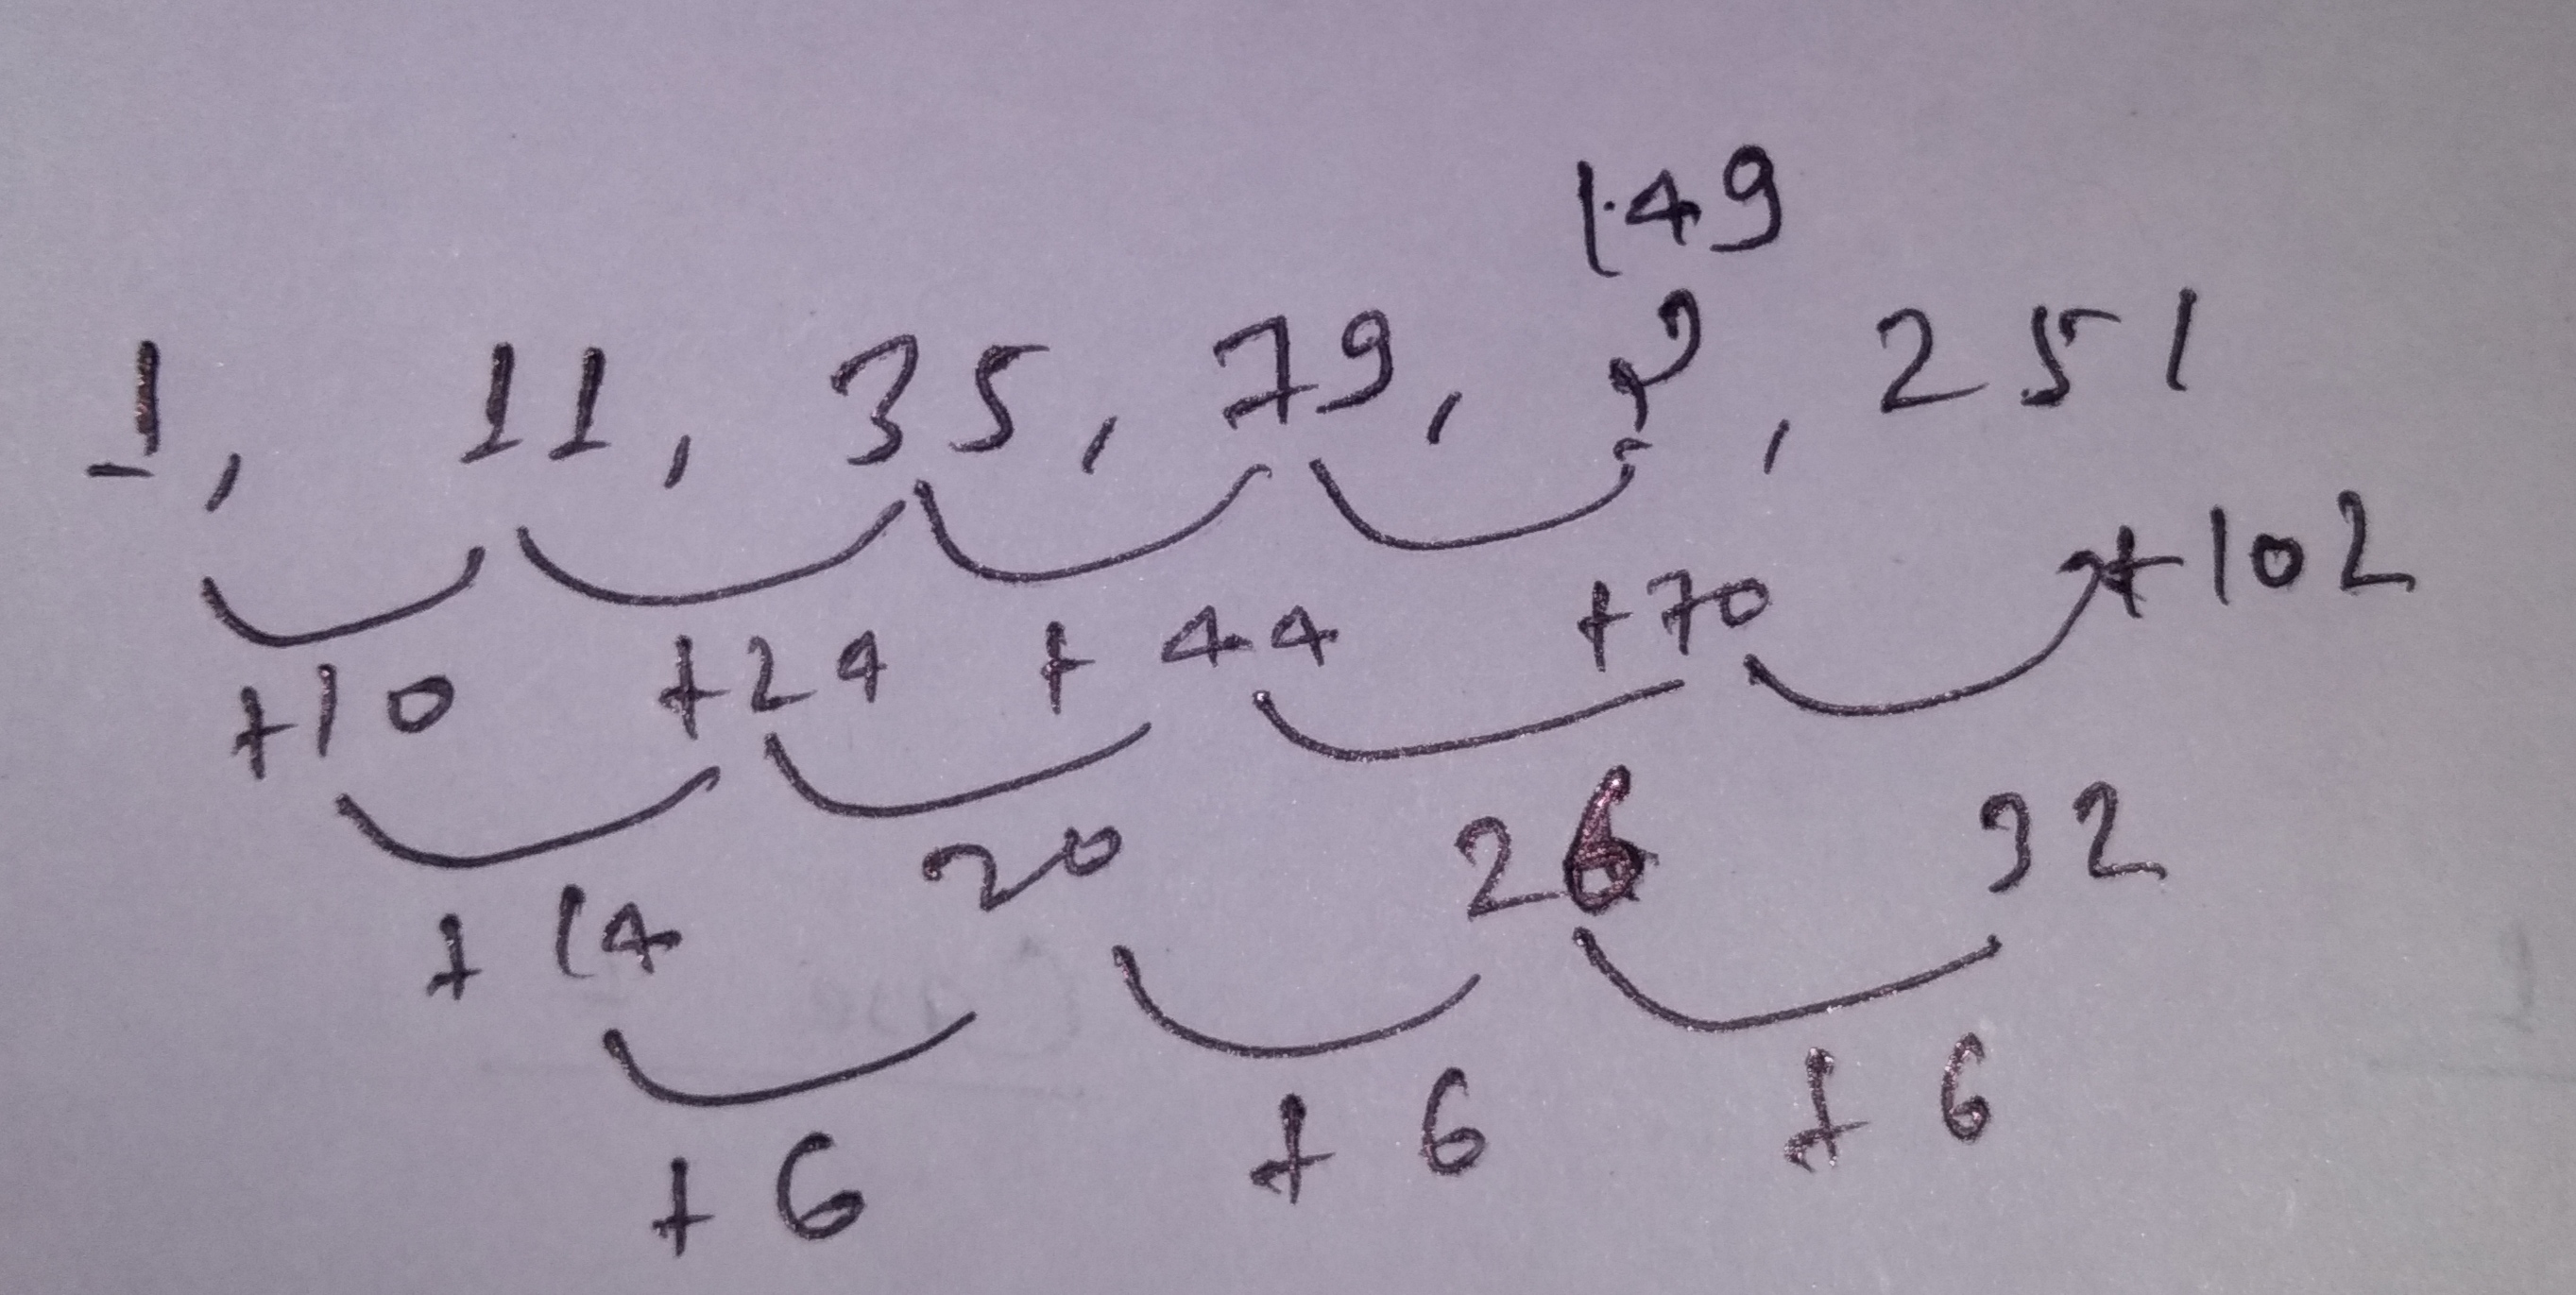 149
1, 11, 35, 79, ?, 251
+10 +24 +44 +70 +102
+14 20 26 32
+6 +6 +6